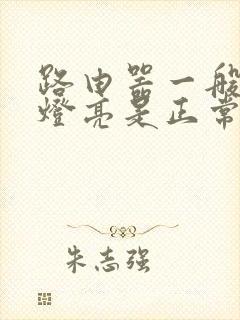 路由器一般
燈亮是正常
朱志强